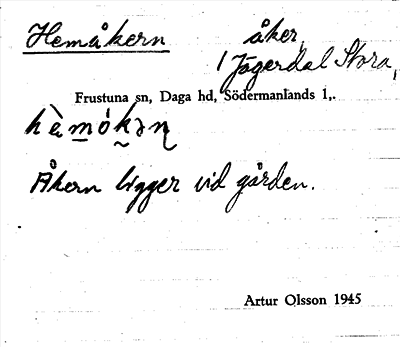 Hemåkern åker,
1 Jägerdal Stora,
Frustuna sn, Daga hd, Södermanlands l,.
hèmókəɳ
Åkern ligger vid gården.
Artur Olsson 1945